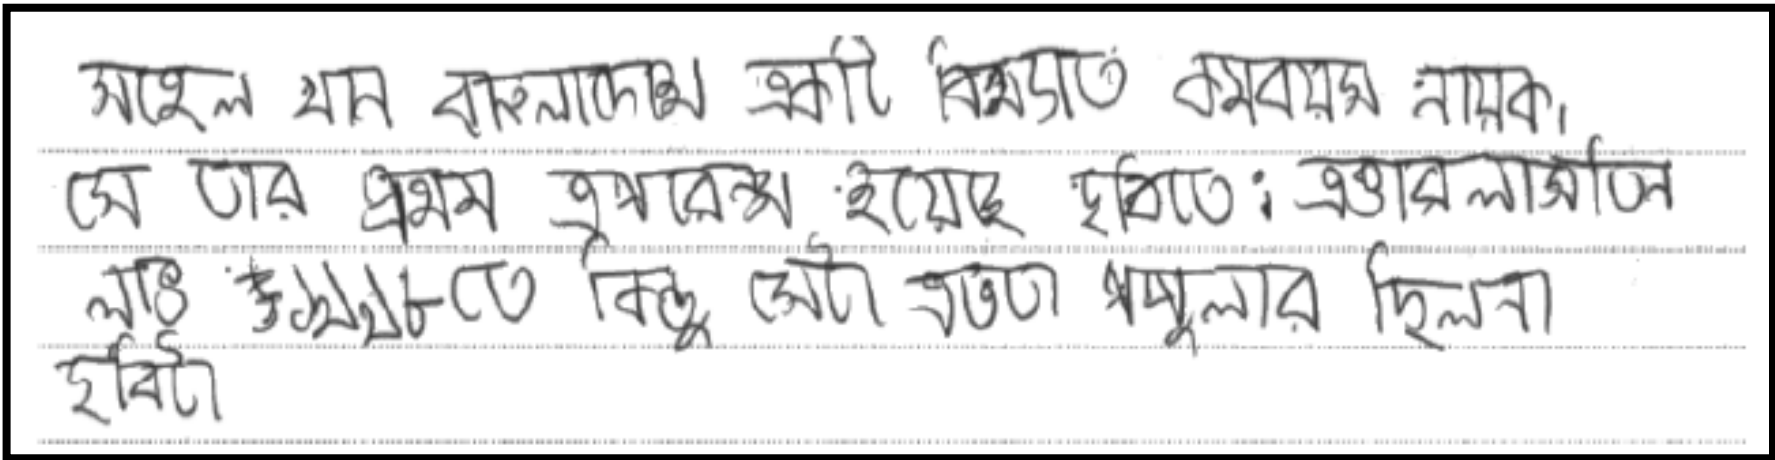 সাহেল খান বাংলাদেশে একটি বিখ্যাত কমবয়স নায়ক।
সে তার প্রথম এপরেন্স হয়েছে ছবিতে: এভারলাসটিন
লাভ ১৯৯৮-তে কিন্তু সেটা এতটা পপুলার ছিলনা
ছবিটা